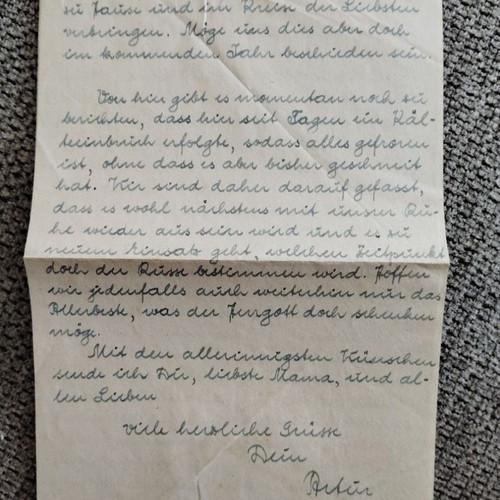 zu Hause und im Kreise der Liebsten
verbringen. Möge uns dies aber doch
im kommenden Jahr beschieden sein.
Von hier gibt es momentan noch zu
berichten, dass hier seit Tagen ein Käl-
teeinbruch erfolgte, sodass alles gefroren
ist, ohne dass es aber bisher geschneit
hat. Wir sind daher darauf gefasst,
dass es wohl nächstens mit unserer Ru-
he wieder aus sein wird und es zu
neuem Einsatz geht, welchen Zeitpunkt
doch der Russe bestimmen wird. Hoffen
wir jedenfalls auch weiterhin nur das
Allerbeste, was der Herrgott doch schenken
möge.
Mit den allerinnigsten Wünschen
sende ich Dir, liebste Mama, und al-
len Lieben
viele herzliche Grüsse
Dein
Artur